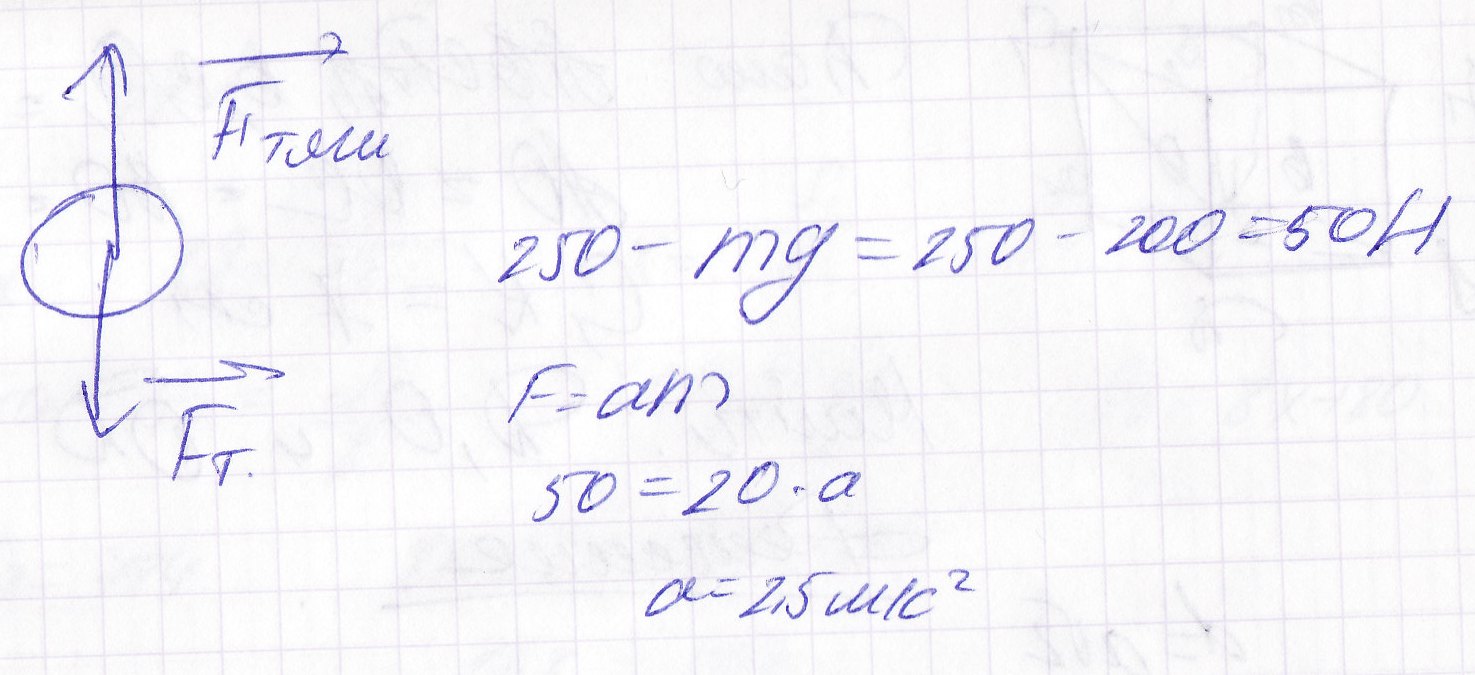 Fтяги
250 - mg = 250 - 200 = 50 Н
Fт.
F = am
50 = 20 · a
a = 2,5 м/с²